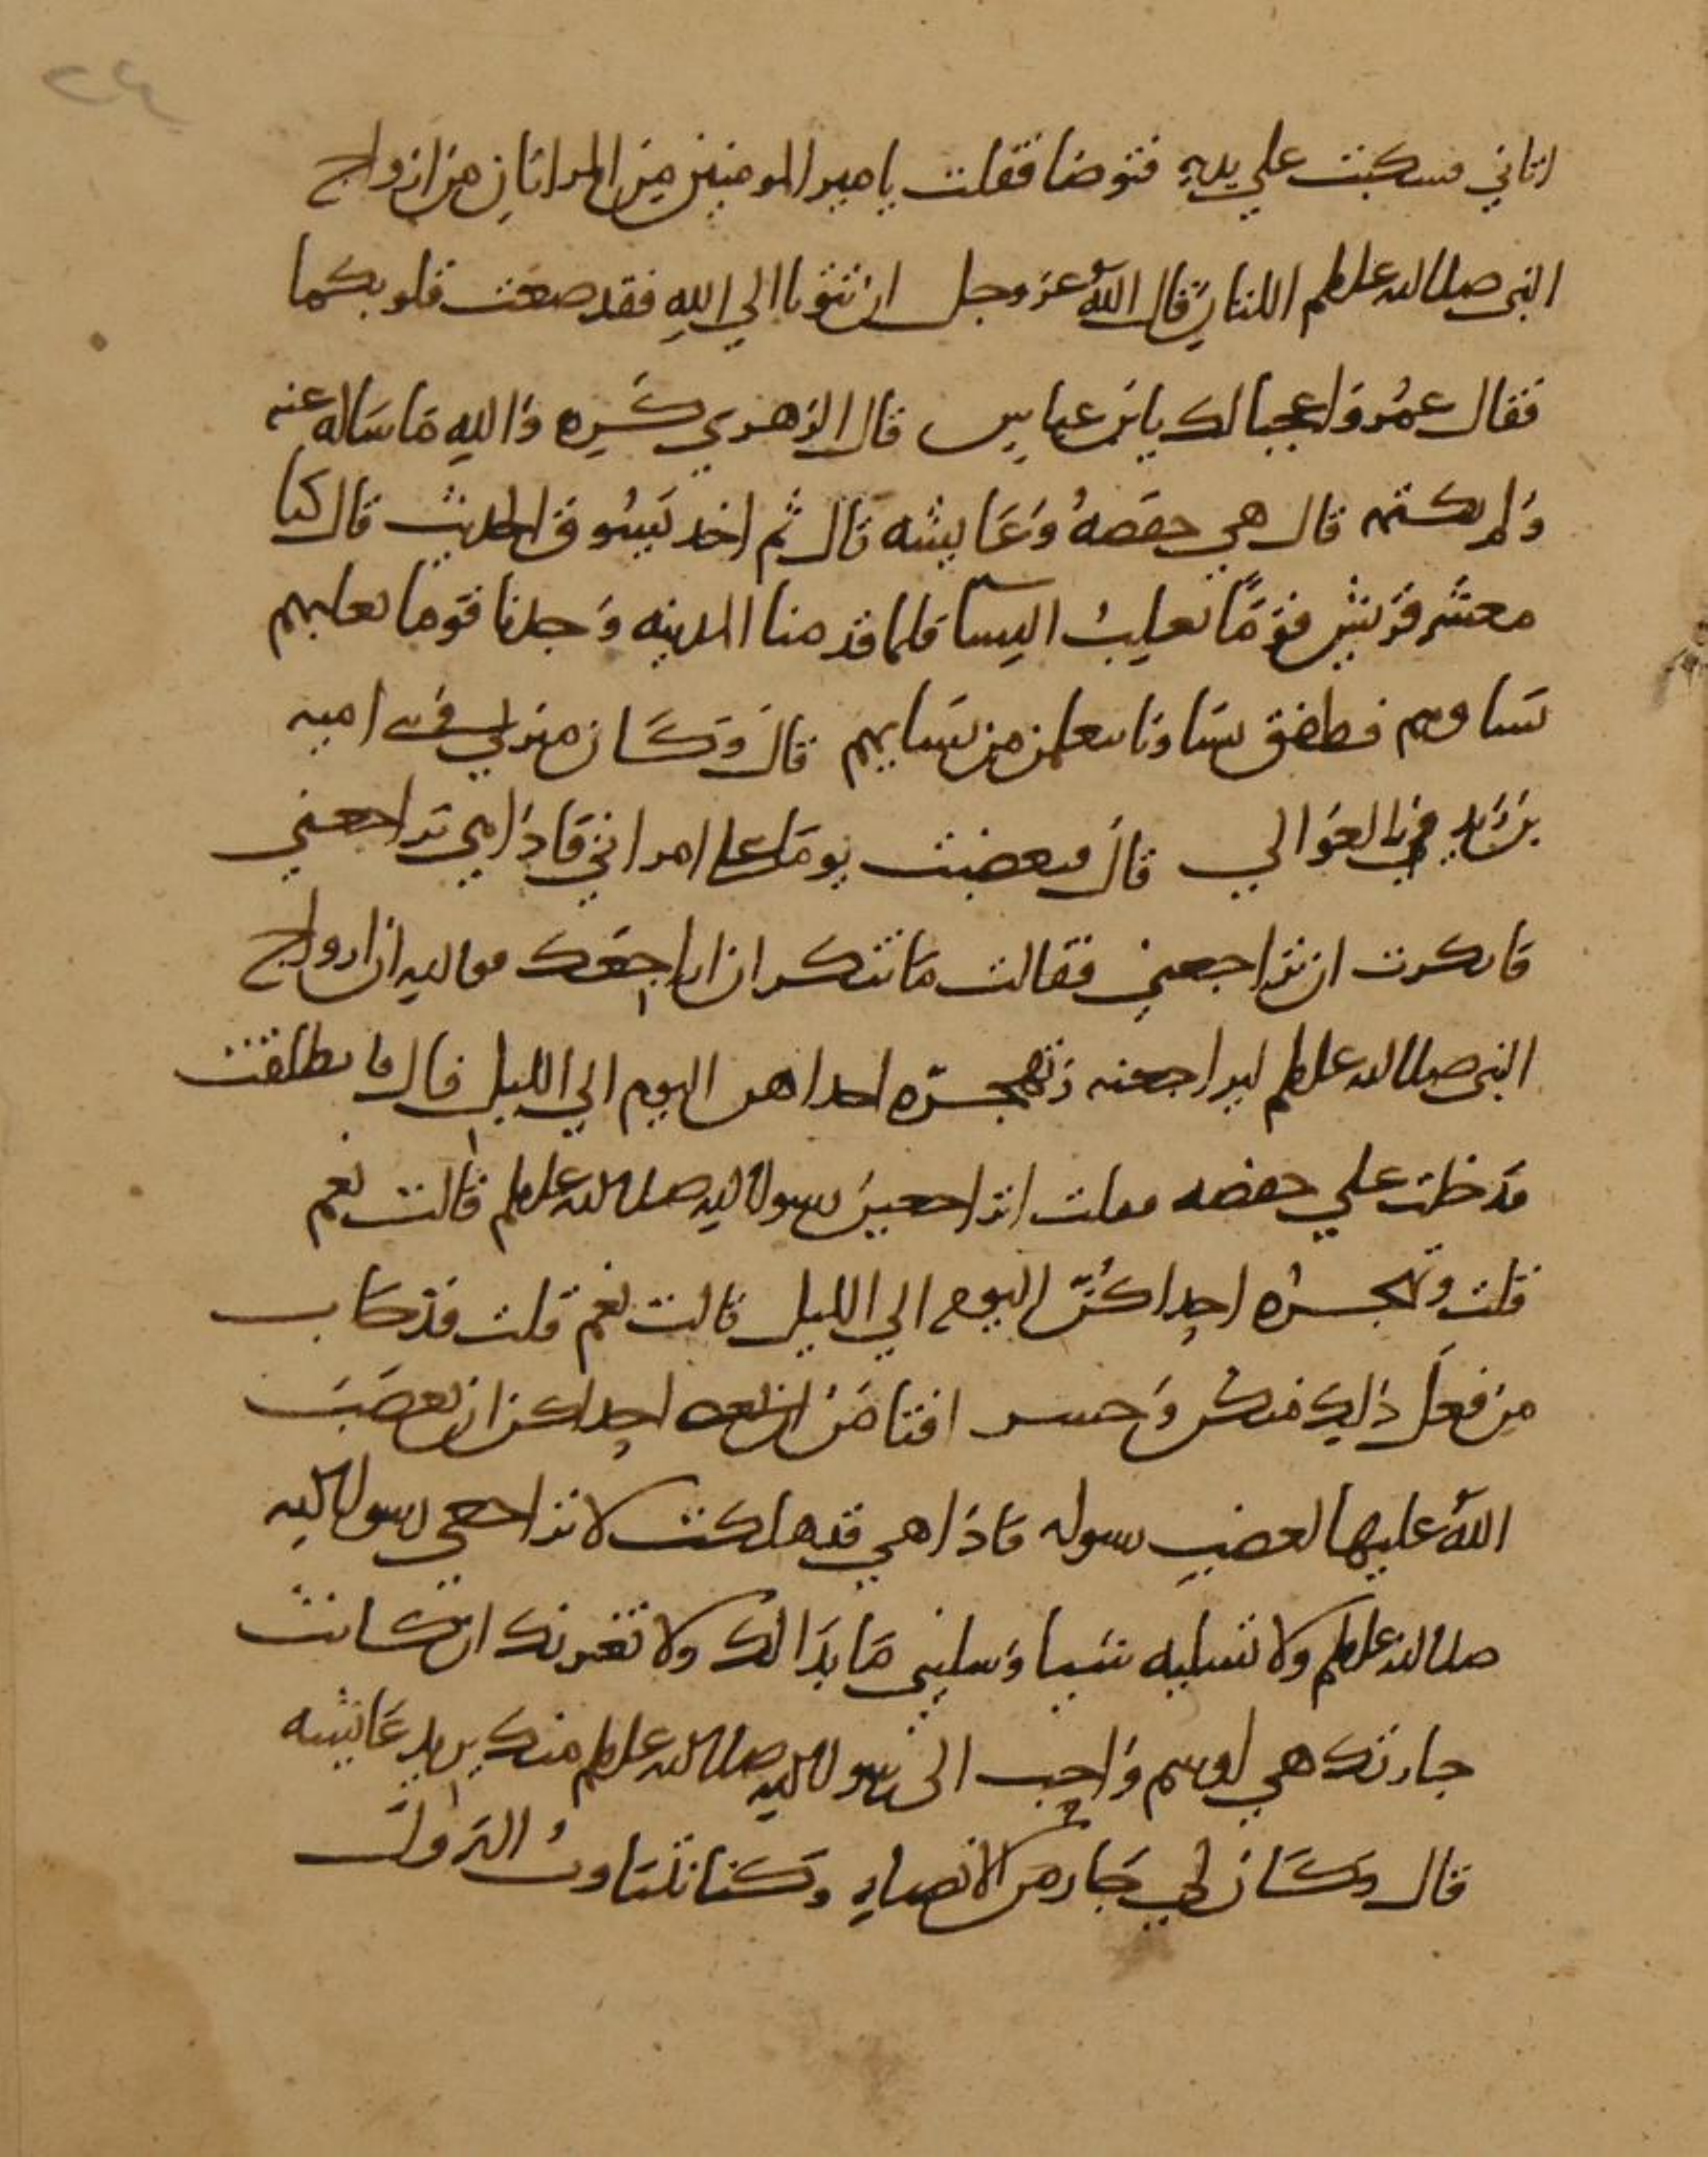 ٢٤
اتاني فسكبت علي يديه فتوضا فقلت يا مير المومنين من المراتان من ازواج
النبي صلى الله عليه وسلم اللتان قال الله عز وجل ان تتوبا الي الله فقد صغت قلوبكما
فقال عمر واعجبا لك يابن عباس قال الزهري كره والله ما ساله عنه
ولم يكتمه قال هي حفصه وعايشه قال ثم اخذ يسوق الحديث قال كنا
معشر قريش قوما نغلب النسا فلما قدمنا المدينه وجدنا قوما تغلبهم
نساوهم فطفق نساونا يتعلمن من نسايهم قال وكان منزلي في بني اميه
بن زيد في العوالي قال فغضبت يوما على امراتي فاذا هي تراجعني
فانكرت ان تراجعني فقالت ما تنكر ان اراجعك فوالله ان ازواج
النبي صلى الله عليه وسلم ليراجعنه وتهجره احداهن اليوم الي الليل قال فانطلقت
فدخلت علي حفصه فقلت اتراجعين رسول الله صلى الله عليه وسلم قالت نعم
قلت وتهجره احداكن اليوم الي الليل قالت نعم قلت قد خاب
من فعل ذلك منكن وخسر افتامن احداكن ان يغضب
الله عليها لغضب رسوله فاذا هي قد هلكت لا تراجعي رسول الله
صلى الله عليه وسلم ولا تسليه شيا وسليني ما بدا لك ولا تغرنك ان كانت
جارتك هي اوسم واحب الى رسول الله صلى الله عليه وسلم منك يريد عايشه
قال وكان لي جار من الانصار وكنا نتناوب النزول